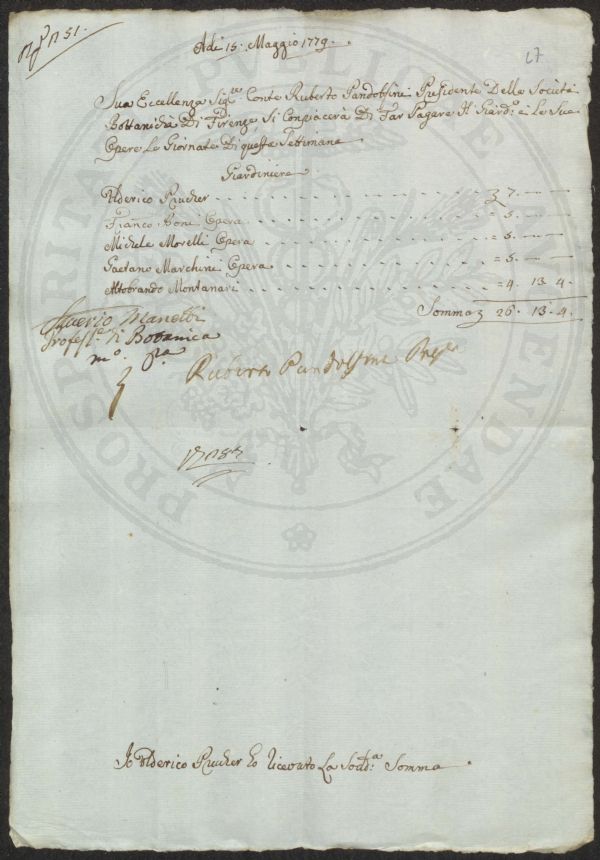 N° 51.
Adi 15. Maggio 1779.
27
Sua Eccellenza Sig.re Conte Ruberto Pandolfini Presidente Della Società
Bottanicha Di Firenze, Si Conpiacerà Di Far Pagare Al Giard.e e Le Sue
Opere Le Giornate Di questa Settimana
Giardiniere
Ulderico Prucher 7. — —
Franco Boni Opera = 5. — —
Michele Morelli Opera = 5. — —
Gaetano Marchini Opera = 5. — —
Altobrando Montanari = 4. 13. 4.
Somma 26. 13. 4.
Saverio Manetti
Profess.e di Botanica
m.o p.a
Ruberto Pandolfini
Io Ulderico Prucher ho ricevuto La Sodd.a Somma
PROSPERITATI PVBLICAE AVGENDAE